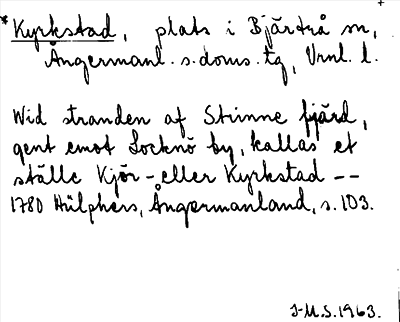 * Kyrkstad, plats i Bjärtrå sn,
Ångermanl. s. doms. tg, Vrnl. l.
Wid stranden af Strinne fjärd,
gent emot Locknö by, kallas et
ställe Kjör- eller Kyrkstad --
1780 Hülphers, Ångermanland, s. 103.
J-M.S. 1963.